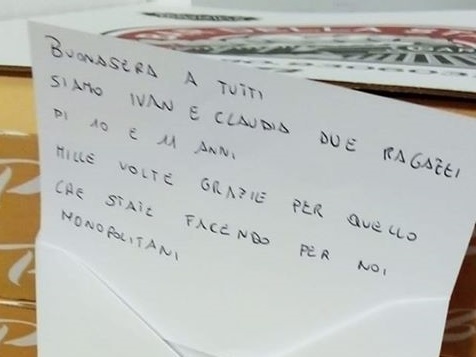 DELLA S
BUONASERA A TUTTI
SIAMO IVAN E CLAUDIA DUE RAGAZZI
DI 10 E 11 ANNI
MILLE VOLTE GRAZIE PER QUELLO
CHE STATE FACENDO PER NOI
MONOPOLITANI